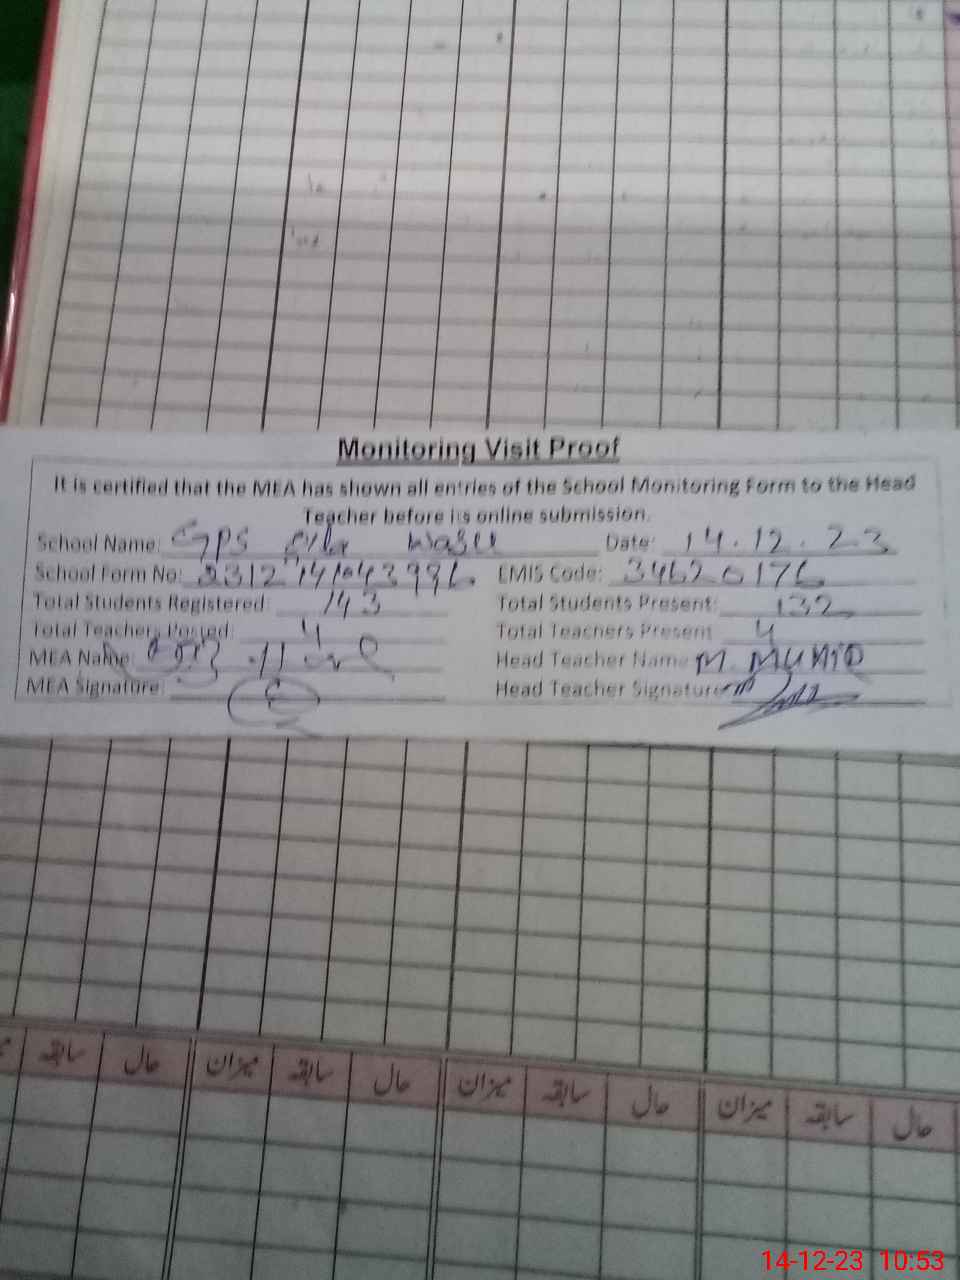 Monitoring Visit Proof
It is certified that the MEA has shown all entries of the School Monitoring Form to the Head
Teacher before its online submission.
School Name: GPS Wasu Date: 14.12.23
School Form No: EMIS Code: 34620176
Total Students Registered: 143 Total Students Present: 132
Total Teachers Posted: 4 Total Teachers Present 4
MEA Name: Head Teacher Name M. MUNIR
MEA Signature: Head Teacher Signature
سابقہ حال میزان سابقہ حال میزان سابقہ حال میزان سابقہ حال
14-12-23 10:53